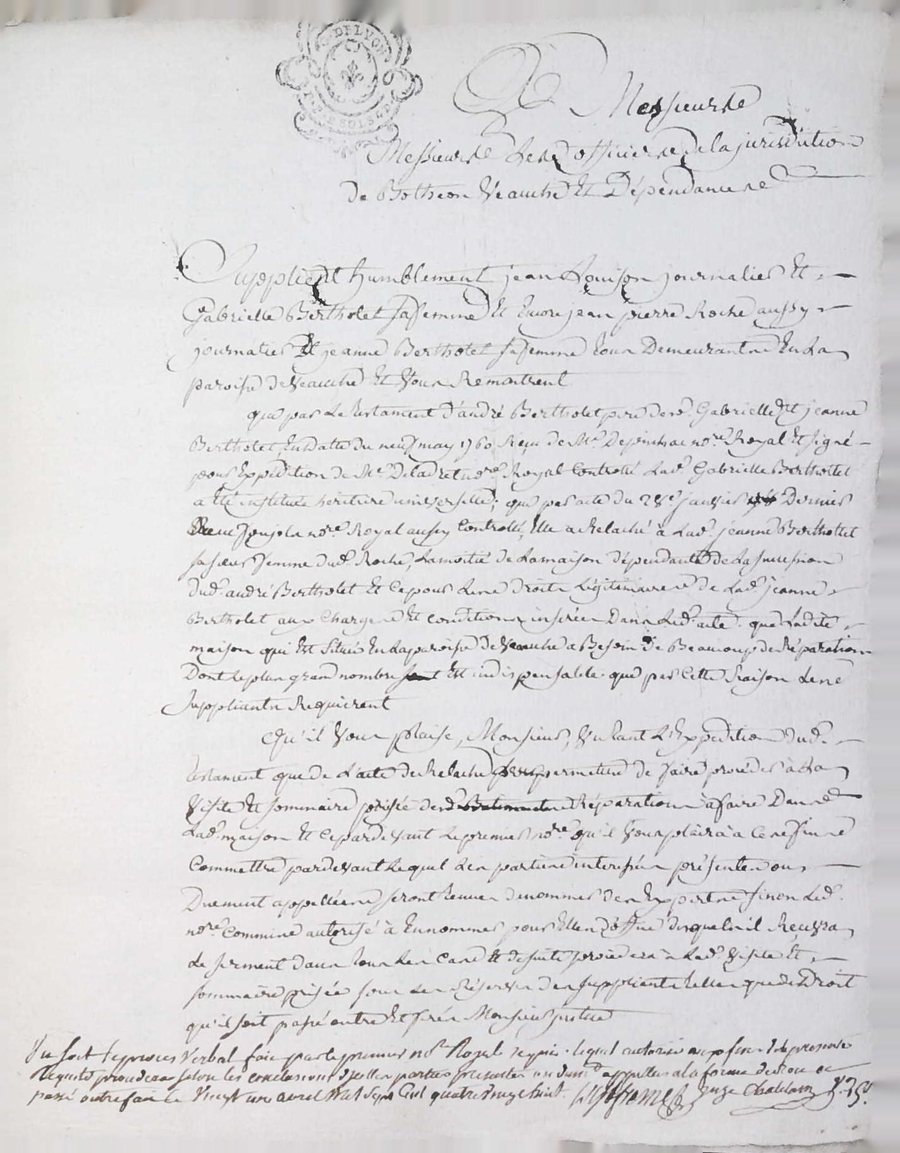 DE LYON
A Messieurs
Messieurs Les officiers de la jurisdition
de Botheon Veauche Et Dépendances
Suplient humblement jean journalier Et
Gabrielle Bertholet sa femme Et Encore jean pierre Roche aussy
journalier Et jeanne Bertholet sa femme tous Demeurants En La
paroisse de Veauche Et Vous Remontrent
que par Le testament d'andré Bertholet pere desd. Gabrielle Et jeanne
Bertholet En datte du neuf may 1760 Reçu de Me. nore. Royal Et signé
pour Expedition de Me. nore. Royal Controllé Lad. Gabrielle Bertholet
a Eté instituée héritiere universelle; que par acte du 28e. janvier Dernier
Reçu nore. Royal aussy Controllé, Elle a Relaché à Lad. jeanne Bertholet
sa sœur femme dud. Roche, La moitié de La maison dépendante de La sucession
dud. andré Bertholet Et Ce pour Les Droits Légitimaires de Lad. jeanne
Bertholet aux Charges Et conditions inserées Dans Led. acte. que Ladite
maison qui Est située En La paroisse de Veauche a Besoin de Beaucoup de Réparations
Dont Le plus grand nombre sont Est indispensable que par Cette Raison Les
Suppliants Requierent
Qu'il Vous plaise, Monsieur, Vu tant L'Expedition dud.
testament que de L'acte de Relaché permettre de faire proceder à La
Visite Et sommaire prisée des Réparations à faire Dans
Lad. maison Et Ce pardevant Le premier nore. qu'il Vous plaira à Ces fins
Commettre pardevant Lequel Les parties interessées présentes ou
Duement appellées seront tenues de nommer des Experts sinon Led.
nore. Commis autorisé à En nommer pour Elles d'office desquels il Recevra
Le serment dans tous Les Cas Et de suite procedera à Lad. Visite Et
sommaire prisée sous Les Réserves des Suppliants telles que de Droit
qu'il soit passé outre Et ferés Monsieur justice
Vu soit Le proces Verbal fait par le premier nore. Royal Requis lequel autorisé aux fins de la presente
Requete procedera selon les conclusions d'icelle parties presentes ou dumt. appellées a la forme de droit
passé outre fait ce Vingt un avril Mil sept Cent quatre Vingt huit. juge